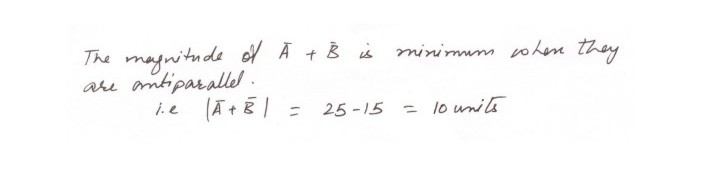 The magnitude of Ā + B̄ is minimum when they
are antiparallel.
i.e |Ā + B̄| = 25 - 15 = 10 units